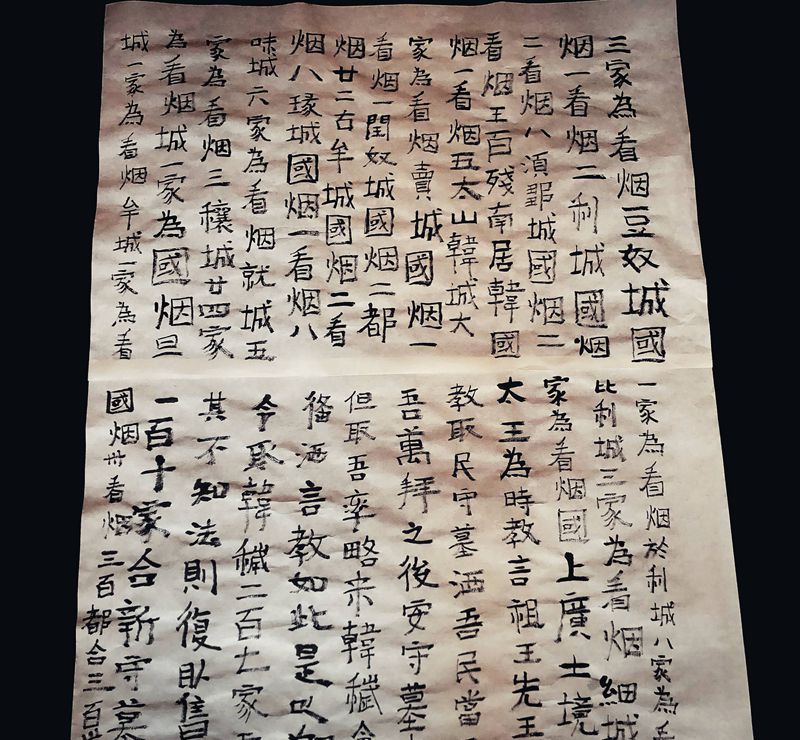 三家為看烟豆奴城國
烟一看烟二利城國烟
二看烟八須鄒城國烟二
看烟王百殘南居韓國
烟一看烟五太山韓城大
家為看烟賣城國烟一
看烟一閏奴城國烟二都
烟廿二古牟城國烟二看
烟八瑑城國烟一看烟八
味城六家為看烟就城五
家為看烟三穰城廿四家
為看烟城一家為國烟旦
城一家為看烟牟城一家為看
一家為看烟於利城八家為看
比利城三家為看烟細城
家為看烟國上廣土境
太王為時教言祖王先王
教取民守墓洒吾民當
吾萬拜之後安守墓
但取吾率略来韓穢令
洒言教如此是以
令取韓穢二百廿家
其不知法則復取舊
一百十家合新守墓
國烟卅看烟三百都合三百